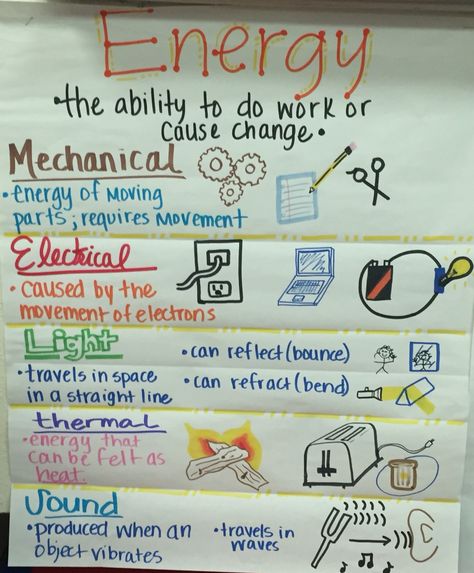 Energy
• the ability to do work or
cause change •
Mechanical
• energy of moving
parts; requires movement
Electrical
• caused by the
movement of electrons
Light
• travels in space
in a straight line
• can reflect (bounce)
• can refract (bend)
thermal
• energy that
can be felt as
heat.
Sound
• produced when an
object vibrates
• travels in
waves